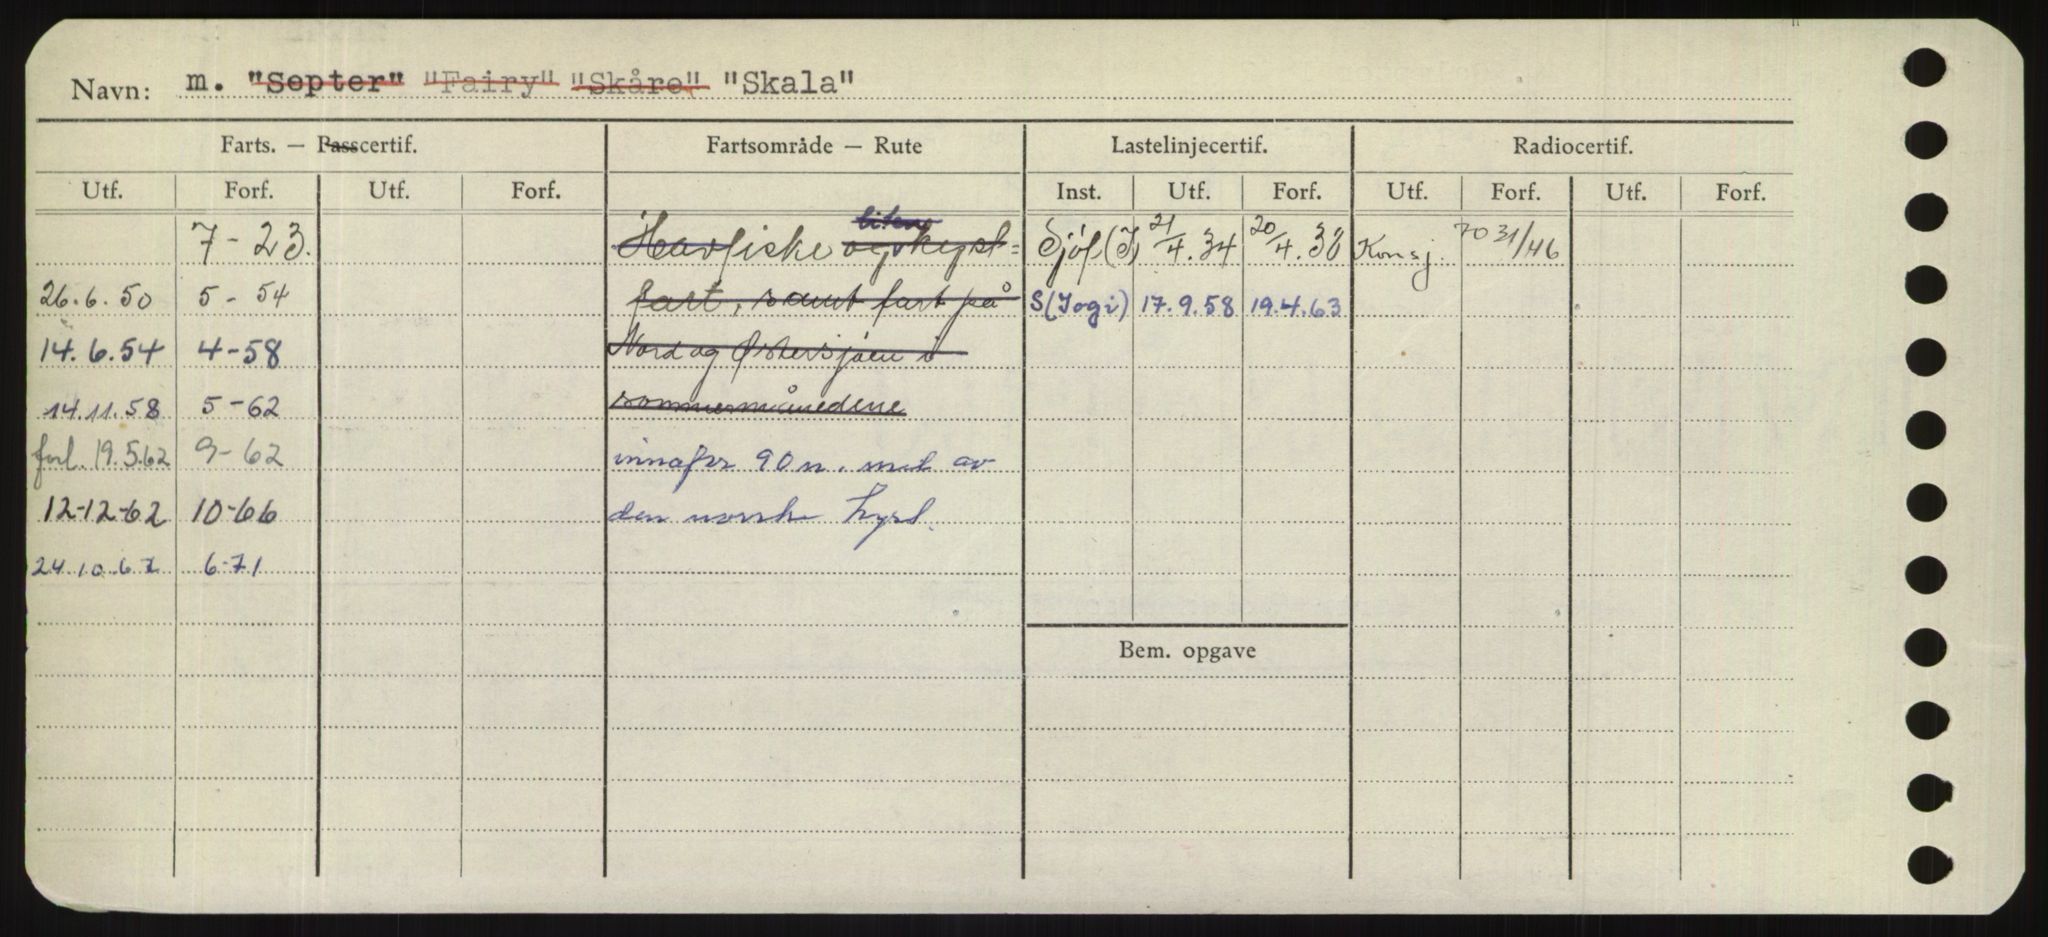 Navn: m. "Septer" "Fairy" "Skåre" "Skala"
Farts. — Passcertif. Fartsområde — Rute Lastelinjecertif. Radiocertif.
Utf. Forf. Utf. Forf. Inst. Utf. Forf. Utf. Forf. Utf. Forf.
liten
7-23. Havfiske og kyst= Sjöf(I) 21/4.34 20/4.38 Konsj. 31/46
26.6.50 5-54 fart, samt fart på S(Iogi) 17.9.58 19.4.63
14.6.54 4-58 Nord og Østersjøen i
14.11.58 5-62 sommermånedene
forl. 19.5.62 9-62 innafor 90 n. mil av
12-12-62 10-66 den norske kyst.
24.10.67 6-71
Bem. opgave